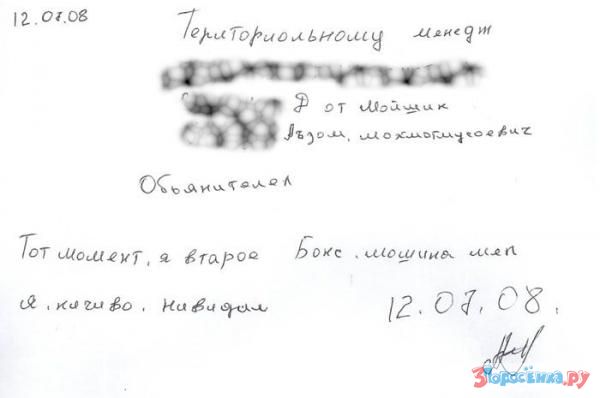 12.07.08
Териториольному менедж
Д от Мойщик
Аъзом, мохмотмусоевич
Обьянителел
Тот момент, я втарое Бокс. мошина меп
я. ничиво. нивидал
12.07.08.
3Поросёнка.ру